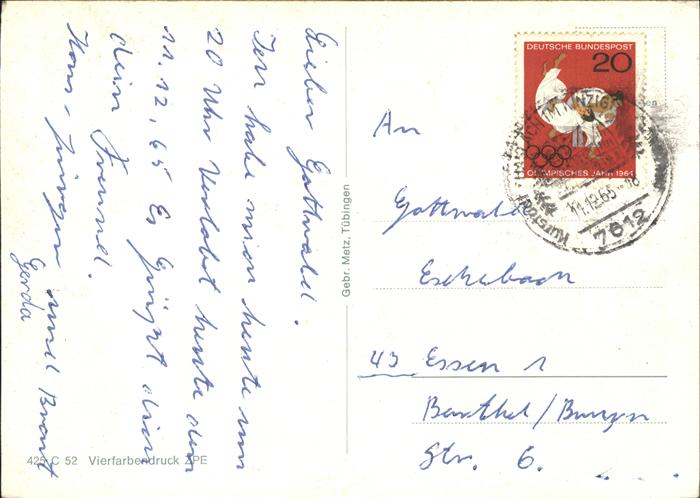 Lieber Gottwald.
Ich habe mich heute um
20 Uhr Verlobt heute den
11.12.65 Es Grüßt dich
dein Freund.
Hans-Jürgen und Braut
Gerda
425 C 52 Vierfarbendruck ZPE
Gebr. Metz, Tübingen
DEUTSCHE BUNDESPOST
20
OLYMPISCHES JAHR 1964
KINZIG
11.12.65-18
7612
An
Gottwald
Eschebach
43 Essen 1
Barthel/Bruyn
Str. 6.